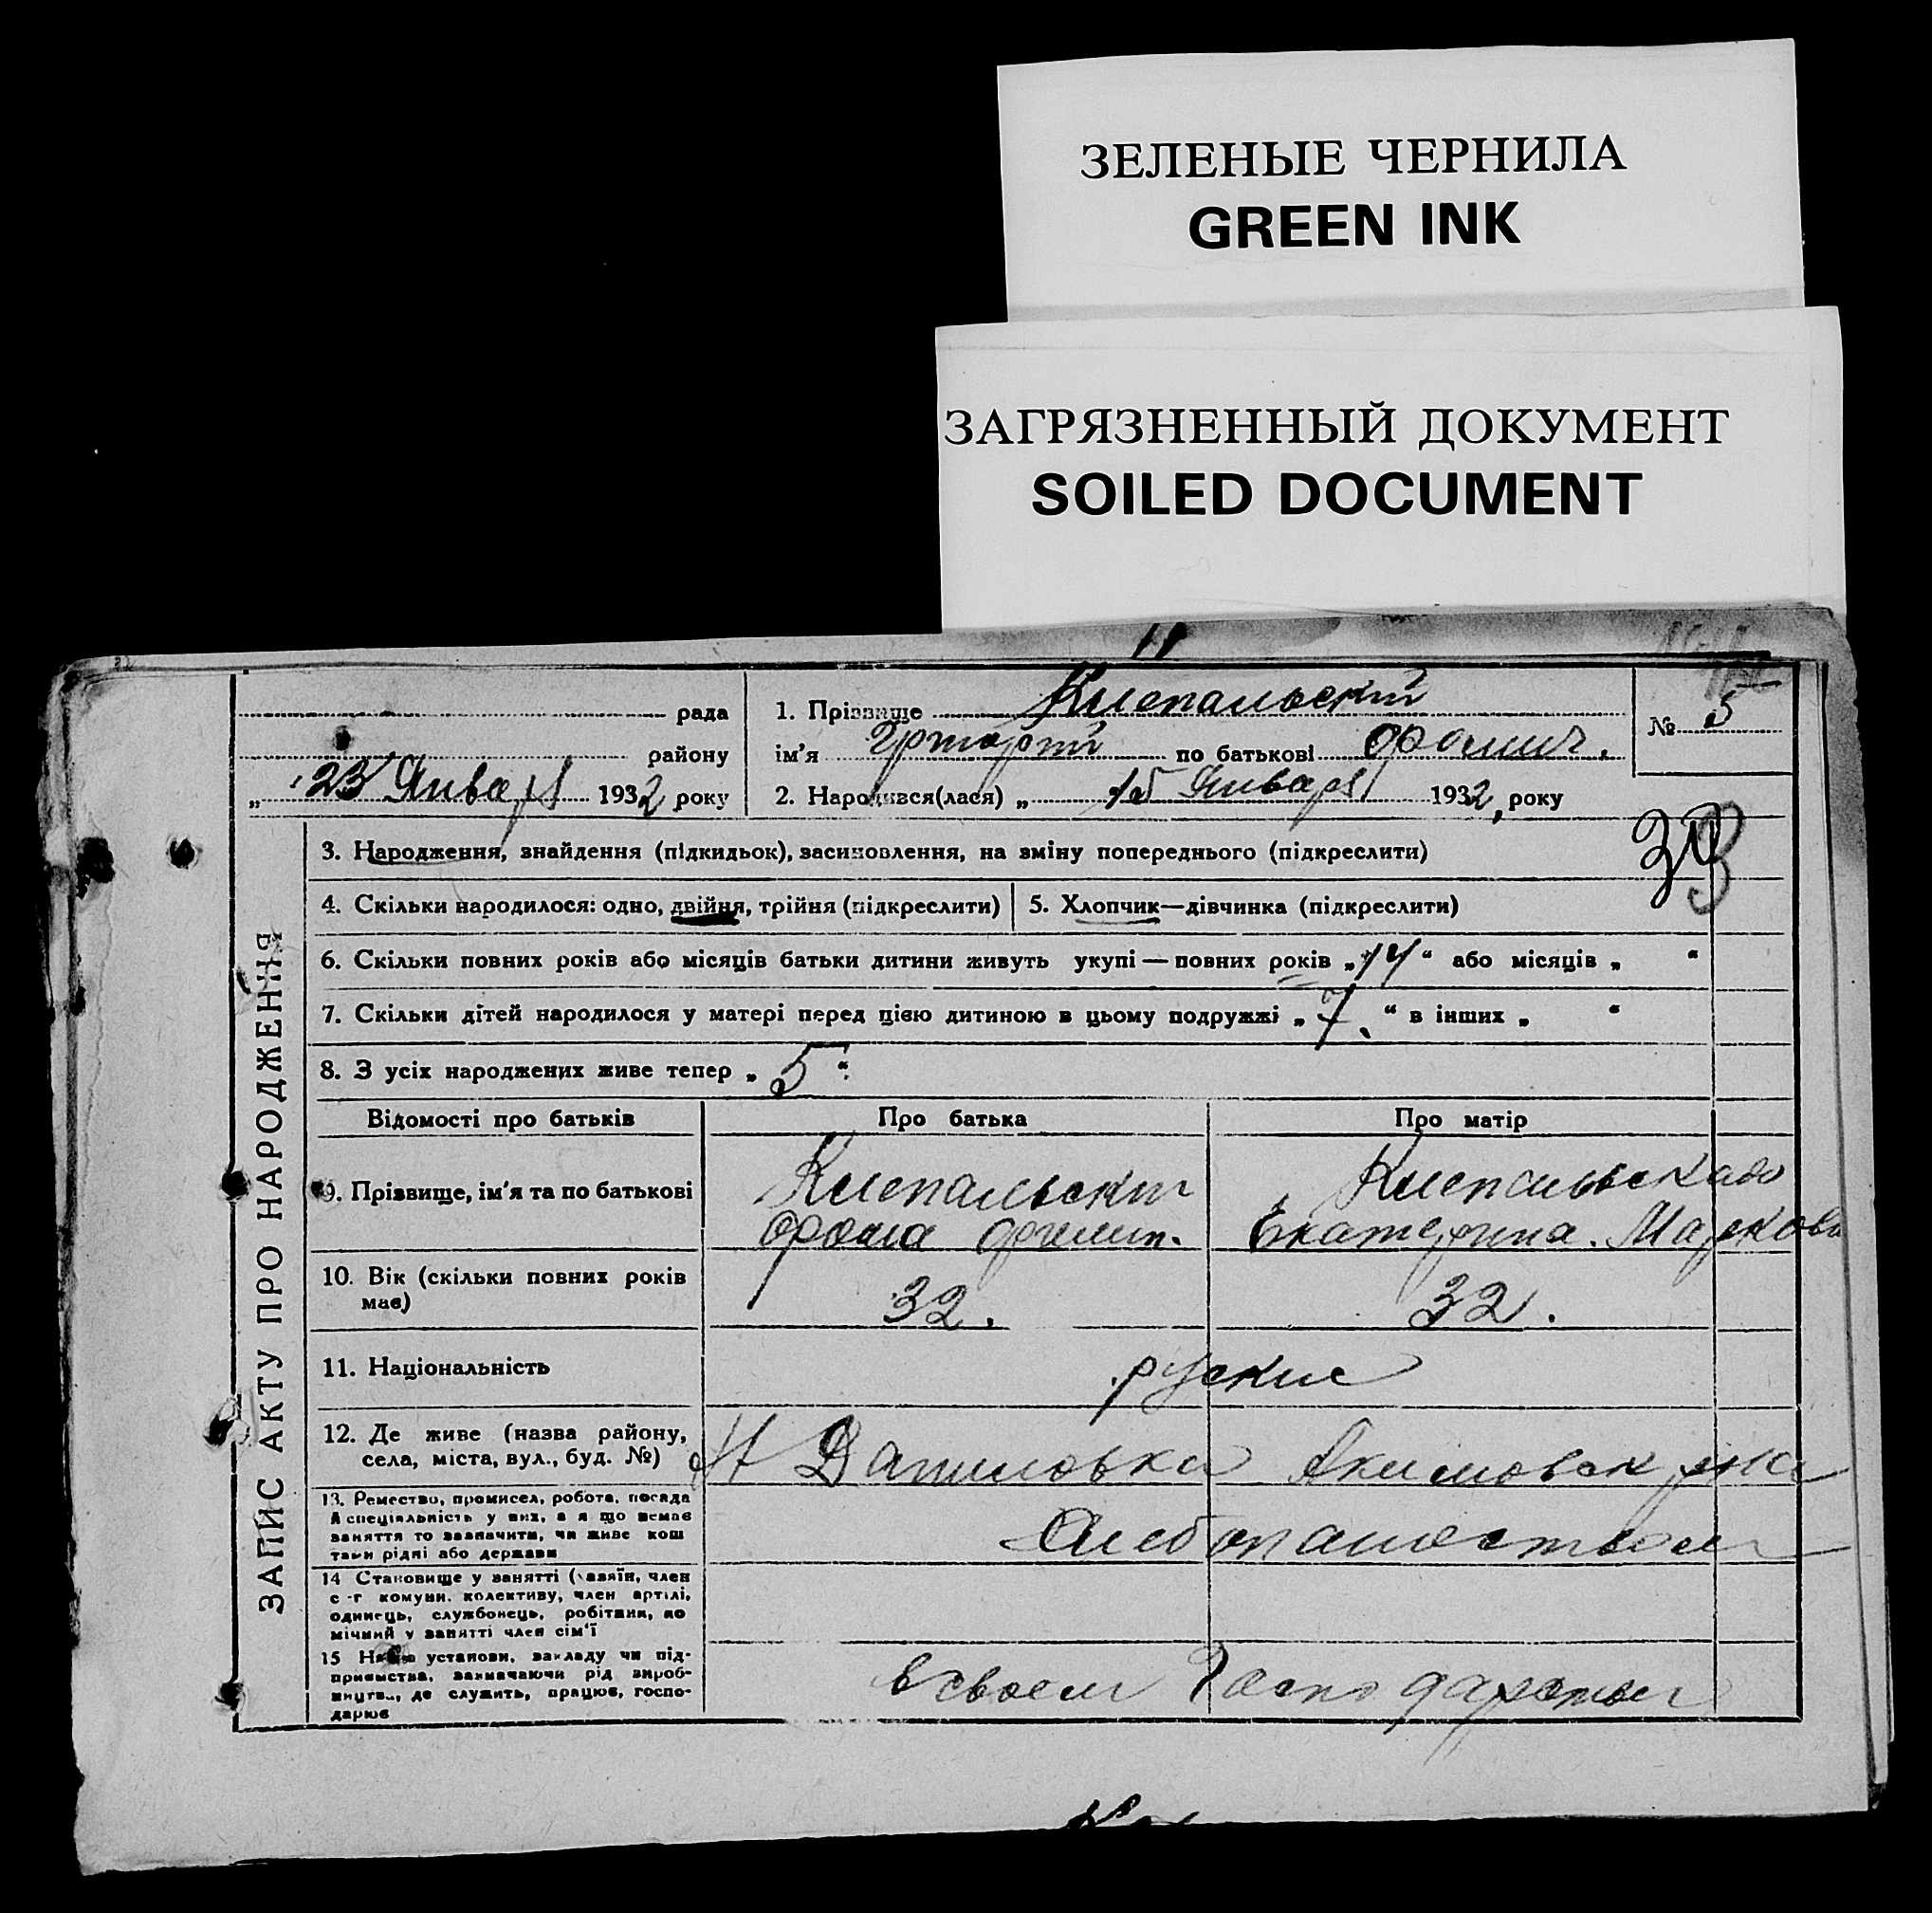 ЗЕЛЕНЫЕ ЧЕРНИЛА
GREEN INK
ЗАГРЯЗНЕННЫЙ ДОКУМЕНТ
SOILED DOCUMENT
рада
району
„ 23 Января 1932 року
1. Прізвище
ім'я по батькові Фомич.
2. Народився(лася) „ 15 Января 1932, року
№ 5
ЗАПИС АКТУ ПРО НАРОДЖЕННЯ
3. Народження, знайдення (підкидьок), засиновлення, на зміну попереднього (підкреслити)
4. Скільки народилося: одно, двійня, трійня (підкреслити)
5. Хлопчик—дівчинка (підкреслити)
6. Скільки повних років або місяців батьки дитини живуть укупі — повних років „14“ або місяців „ “
7. Скільки дітей народилося у матері перед цією дитиною в цьому подружжі „7“ в інших „ “
8. З усіх народжених живе тепер „5“
Відомості про батьків
Про батька
Про матір
9. Прізвище, ім'я та по батькові
Фома Филип.
Екатерина. Маркова
10. Вік (скільки повних років
має)
32.
32.
11. Національність
руские
12. Де живе (назва району,
села, міста, вул., буд. №)
Н Даниловка Акимовск р-на
13. Ремество, промисел, робота, посада
й спеціяльність у них, а якщо немає
заняття то зазначити, чи живе кош
тами рідні або держави
Хлебопашеством
14 Становище у занятті (хазяїн, член
с-г комуни, колективу, член артілі,
одинець, службонець, робітник, по
мічний у занятті член сім'ї
15 Назва установи, закладу чи під-
приємства, зазначаючи рід вироб-
ництва, де служить, працює, госпо-
дарює
в своем Господарстве